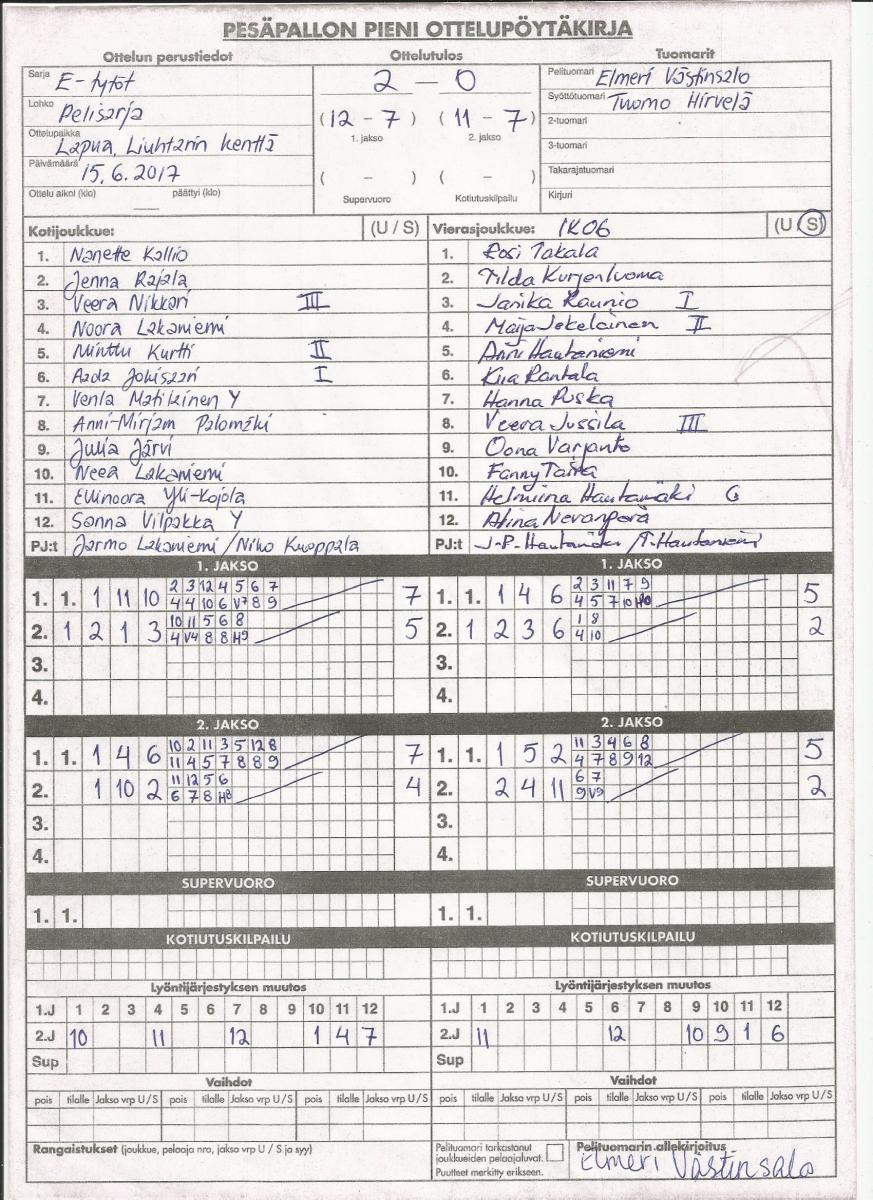 PESÄPALLON PIENI OTTELUPÖYTÄKIRJA
Ottelun perustiedot Ottelutulos Tuomarit
Sarja E-tytöt 2 – 0 Pelituomari Elmeri Västinsalo
Lohko Pelisarja (12 – 7) (11 – 7) Syöttötuomari Tuomo Hirvelä
1. jakso 2. jakso 2-tuomari
Ottelupaikka Lapua, Liuhtarin kenttä 3-tuomari
Päivämäärä 15.6.2017 ( – ) ( – ) Takarajatuomari
Ottelu alkoi (klo) päättyi (klo) Supervuoro Kotiutuskilpailu Kirjuri
Kotijoukkue: (U / S) Vierasjoukkue: IK06 (U / S)
1. Nanette Kallio 1. Rosi Takala
2. Jenna Rajala 2. Tilda Kurjenluoma
3. Veera Nikkari III 3. Janika Raunio I
4. Noora Lakaniemi 4. Maija Jokelainen II
5. Minttu Kurtti II 5. Anni Hautaniemi
6. Aada Jokisaari I 6. Kiia Rantala
7. Venla Matikinen Y 7. Hanna Puska
8. Anni-Mirjam Palomäki 8. Veera Jussila III
9. Julia Järvi 9. Oona Varjanto
10. Neea Lakaniemi 10. Fanny Taira
11. Ellinoora Yli-Kojola 11. Helmiina Hautamäki
12. Sanna Vilpakka Y 12. Alina Nevanperä
PJ:t Jarmo Lakaniemi / Niko Kuoppala PJ:t J-P. Hautamäki / T. Hautaniemi
1. JAKSO 1. JAKSO
2 3 12 4 5 6 7 2 3 11 7 9
1. 1. 1 11 10 4 4 10 6 V7 8 9 7 1. 1. 1 4 6 4 5 7 10 H10 5
10 11 5 6 8 1 8
2. 1 2 1 3 4 V4 8 8 H9 5 2. 1 2 3 6 4 10 2
3. 3.
4. 4.
2. JAKSO 2. JAKSO
10 2 11 3 5 12 8 11 3 4 6 8
1. 1. 1 4 6 11 4 5 7 8 8 9 7 1. 1. 1 5 2 4 7 8 9 12 5
11 12 5 6 6 7
2. 1 10 2 6 7 8 H8 4 2. 2 4 11 9 V9 2
3. 3.
4. 4.
SUPERVUORO SUPERVUORO
1. 1. 1. 1.
KOTIUTUSKILPAILU KOTIUTUSKILPAILU
Lyöntijärjestyksen muutos Lyöntijärjestyksen muutos
1.J 1 2 3 4 5 6 7 8 9 10 11 12 1.J 1 2 3 4 5 6 7 8 9 10 11 12
2.J 10 11 12 1 4 7 2.J 11 12 10 9 1 6
Sup Sup
Vaihdot Vaihdot
pois tilalle Jakso vrp U / S pois tilalle Jakso vrp U / S pois tilalle Jakso vrp U / S pois tilalle Jakso vrp U / S pois tilalle Jakso vrp U / S pois tilalle Jakso vrp U / S
Rangaistukset (joukkue, pelaaja nro, jakso vrp U / S ja syy) Pelituomari tarkastanut Pelituomarin allekirjoitus
joukkueiden pelaajaluvat. Elmeri Västinsalo
Puutteet merkitty erikseen.